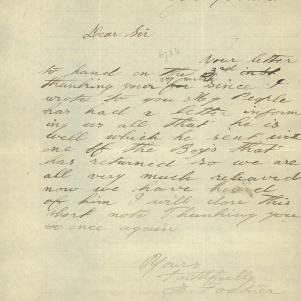 Dear Sir
6784
Your letter
to hand on the 3rd inst
thanking you very much for since I
wrote to you My People
has had a letter inform
ing us all that he is
well which he sent with
one off the Boy's that
has returned so we are
all very much releaved
now we have heard
of him I will close this
short note Thanking you
once again
Yours
Faithfully
Foster